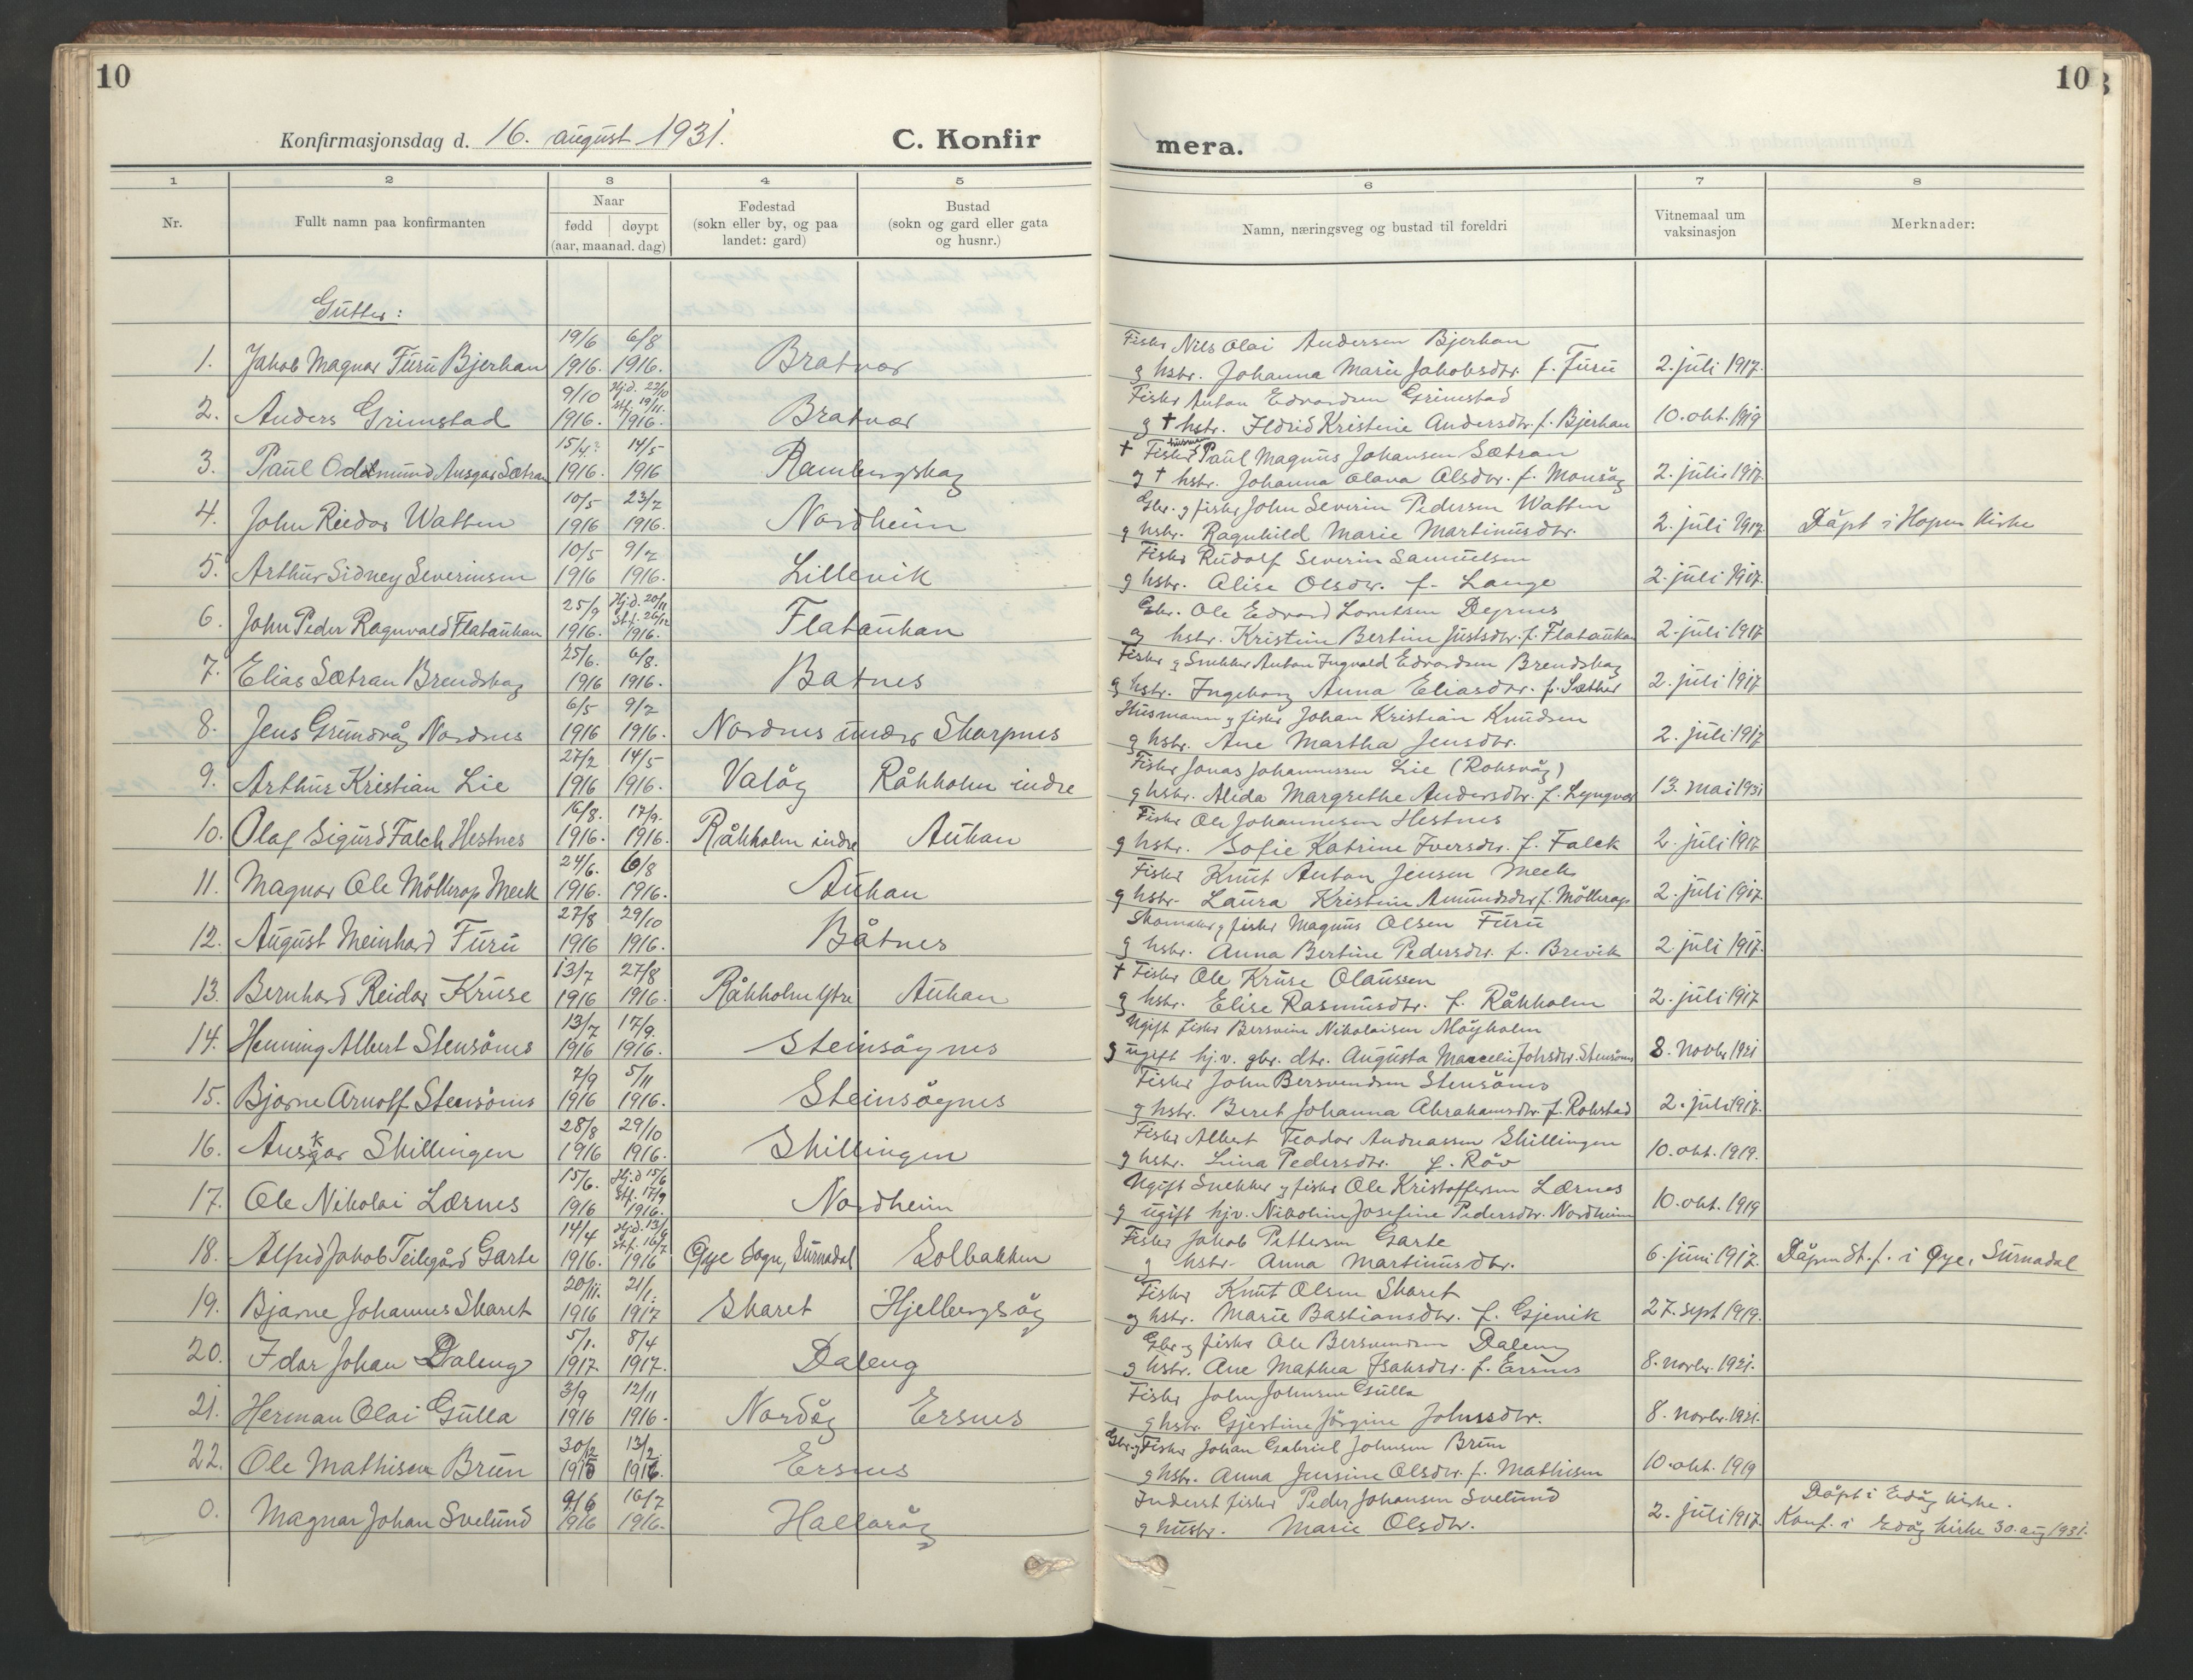 10
Konfirmasjonsdag d. 16. august 1931.
C. Konfir
1 2 3 4 5
Nr.
Fullt namn paa konfirmanten
Naar
fødd døypt
(aar, maanad. dag)
Fødestad
(sokn eller by, og paa
landet: gard)
Bustad
(sokn og gard eller gata
og husnr.)
Gutter:
19/6 6/8
1. Jakob Magnar Furu Bjerkan 1916. 1916. Bratvær
9/10 Hj.d. 22/10 stf. 19/11.
2. Anders Grimstad 1916. 1916. Bratvær
15/4. 14/5
3. Paul Oddmund Ansgar Sætran 1916. 1916 Rambergskag
10/5 23/7
4. John Reidar Watten 1916 1916. Nordheim
10/5 9/7
5. Arthur Sidney Severinsen 1916 1916. Lillevik
25/9 Hj.d. 20/11 St.f. 26/12
6. John Peder Ragnvald Flataukan 1916. 1916. Flataukan
25/6. 6/8.
7. Elias Sætran Brendskag 1916 1916. Batnes
6/5 9/7
8. Jens Grundvåg Nordnes 1916 1916. Nordnes under Skarpnes
27/2 14/5
9. Arthur Kristian Lie 1916 1916. Valåg Råkholm indre
16/8. 17/9.
10. Olaf Sigurd Falch Hestnes 1916. 1916. Råkholm indre Aukan
24/6. 6/8
11. Magnar Ole Møllerop Meek 1916. 1916. Aukan
27/8 29/10
12. August Meinhard Furu 1916 1916. Båtnes
13/7 27/8
13. Bernhard Reidar Kruse 1916 1916. Råkholm Ytre Aukan
13/7 17/9.
14. Henning Albert Stensønes 1916 1916. Steinsøynes
7/9 5/11
15. Bjarne Arnolf Stensønes 1916 1916. Steinsøynes
28/8 29/10
16. Ansgar Skillingen 1916 1916. Skillingen
15/6. Hj.d 15/6 Stf. 17/9
17. Ole Nikolai Lærnes 1916 1916. Nordheim
14/4 Hj.d. 13/6 st.f. 16/7
18. Alfred Jakob Teilegård Garte 1916. 1916 Øye Sogn, Surnadal Solbakken
20/11. 21/1.
19. Bjarne Johannes Skaret 1916 1917 Skaret Hjelbergsåg
5/1. 8/4
20. Idar Johan Daleng 1917 1917. Daleng
3/9 12/11
21. Herman Olai Gulla 1916 1916. Nordåg Ersnes
30/12 13/2
22. Ole Mathisen Brun 1915 1916. Ersnes
9/6 16/7
0. Magnar Johan Svelund 1916 1916. Hallaråg
10
mera.
6 7 8
Namn, næringsveg og bustad til foreldri
Vitnemaal um
vaksinasjon
Merknader:
Fisker Nils Olai Andersen Bjerkan
g hstr. Johanna Marie Jakobsdtr. f. Furu 2. juli 1917.
Fisker Anton Edvardsen Grimstad
g † hstr. Ildrid Kristine Andersdtr. f. Bjerkan 10. okt. 1919
† Fisker husmann Paul Magnus Johansen Sætran
g † hstr. Johanna Olava Olsdtr. f. Monsåg 2. juli 1917.
Gbr. g fisker John Severin Pedersen Watten
g hstr. Ragnhild Marie Martinusdtr. 2. juli 1917. Døpt i Hopen Kirke
Fisker Rudolf Severin Samuelsen
g hstr. Alise Olsdtr. f. Lange 2. juli 1917.
Gbr. Ole Edvard Lorntsen Dyrnes
g hstr. Kristine Bertine Justsdtr. f. Flataukan 2. juli 1917
Fisker g Snekker Anton Ingvald Edvardsen Brendskag
g hstr. Ingeborg Anna Eliasdtr. f. Sæther 2. juli 1917
Husmann g fisker Johan Kristian Knudsen
g hstr. Ane Martha Jensdtr. 2. juli 1917
Fisker Jonas Johannessen Lie (Roksvåg)
g hstr. Alida Margrethe Andersdtr. f. Lyngvær 13. mai 1931
Fisker Ole Johannesen Hestnes
g hstr. Sofie Katrine Iversdtr. f. Falck 2. juli 1917
Fisker Knut Anton Jensen Meek
g hstr. Laura Kristine Amundsdtr. f. Møllerop 2. juli 1917.
Skomaker g fisker Magnus Olsen Furu
g hstr. Anna Bertine Pedersdtr. f. Brevik 2. juli 1917.
† Fisker Ole Kruse Olaussen
g hstr. Elise Rasmusdtr. f. Råkholm 2. juli 1917
Ugift fisker Bersvein Nikolaisen Møyholm
g ugift hj.v. gbr. dtr. Augusta Marcelie Johsdtr. Stensønes 8. novbr 1921
Fisker John Bersvendsen Stensønes
g hstr. Beret Johanna Abrahamsdtr. f. Rokstad 2. juli 1917.
Fisker Albert Teodor Andreassen Skillingen
g hstr. Lina Pedersdtr. f. Røv 10. okt. 1919.
Ugift Snekker g fisker Ole Kristoffersen Lærnes
g ugift hjv. Nikoline Josefine Pedersdtr. Nordheim 10. okt. 1919
Fisker Jakob Pettersen Garte
g hstr. Anna Martinusdtr. 6. juni 1917. Døpen St.f. i Øye, Surnadal
Fisker Knut Olsen Skaret
g hstr. Marie Bastiansdtr. f. Gjenvik 27. sept 1919.
Gbr g fisker Ole Bersvendsen Daleng
g hstr. Ane Mathea Isaksdtr. f. Ersnes 8. novbr. 1921.
Fisker John Johnsen Gulla
g hstr. Gjertine Jørgine Johnsdtr. 8. novbr. 1921.
Gbr. g Fisker Johan Gabriel Johnsen Brun
g hstr. Anna Jensine Olsdtr. f. Mathisen 10. okt. 1919
Inderst fisker Peder Johansen Svelund Døpt i Edøy kirke.
g hustr. Marie Olsdtr. 2. juli 1917. Konf. i Edøy kirke 30. aug 1931.